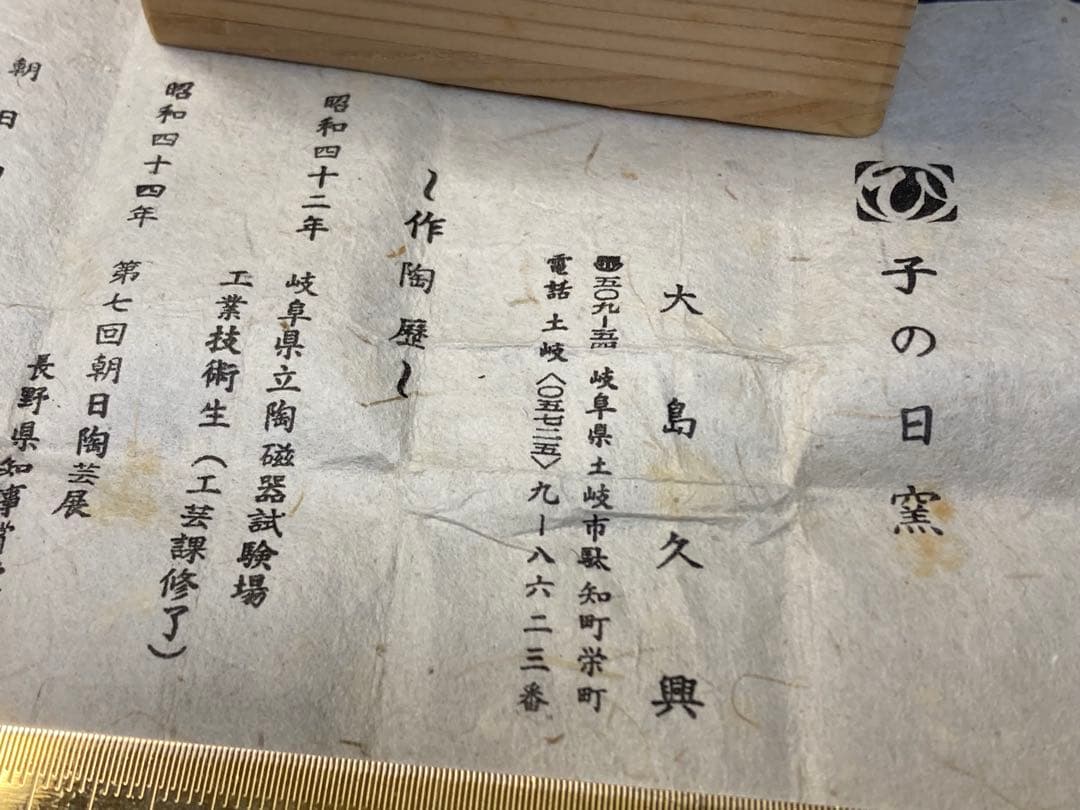 子の日窯
大島久興
五〇九-五四 岐阜県土岐市駄知町栄町
電話 土岐〈〇五七二五〉九-八六二三番
~作陶歴~
昭和四十二年 岐阜県立陶磁器試験場
工業技術生(工芸課修了)
昭和四十四年 第七回朝日陶芸展
長野県知事賞
朝日